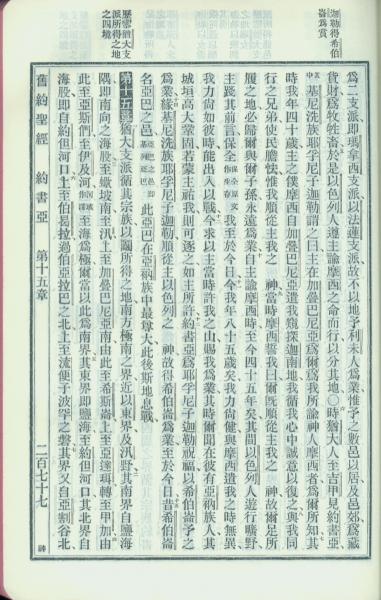 迦勒得希伯
崙爲賞
歷言猶大支
派所得之地
之四境
爲二支派即瑪拿西支派以法蓮支派故不以地予利未人爲業惟予之數邑以居及邑郊爲藏
貨財爲牧牲畜於是以色列人遵主諭摩西之命而行以分其地〇時猶大人至吉甲見約書亞
基尼洗族耶孚尼子迦勒謂之曰主在加疊巴尼亞爲爾爲我所諭神人摩西者爲爾所知其
時我年四十歲主之僕摩西自加疊巴尼亞遣我窺探迦南地我循我心中誠意以復之與我同
行之兄弟使民膽怯惟我順從主我之 神當時摩西誓我曰爾既順從主我之 神故爾足所
履之地必歸爾與爾子孫永遠爲業自主諭摩西時至今四十五年矣其間以色列人遊行曠野
主踐其前言保全 我至於今日今我年八十五歲矣我力尚健與摩西遣我之時無異
我力尚如彼時能出入以戰今求以主當時許我之山賜我爲業其時爾聞在彼有亞衲族人其
城垣高大鞏固若蒙主祐我則可逐之如主所許約書亞爲耶孚尼子迦勒祝福以希伯崙予之
爲業緣基尼洗族耶孚尼子迦勒順從主以色列之 神故得希伯崙爲業至於今日昔希伯崙
名亞巴之邑 此亞巴在亞衲族中最尊大此後斯地息戰
第十五章猶大支派循其宗族以鬮所得之地南方極南之界近以東界及汛野其南界自鹽海
隅即南向之海股至蠍坡南至汛上至加疊巴尼亞南由此至希斯崙上至亞達珥轉至甲加由
此至亞斯們至伊及河 至海爲極爾當以此爲南界其東界即鹽海至約但河口其北界自
海股即自約但河口上至伯曷拉過伯亞拉巴之北上至流便子波罕之磐其界又自亞割谷北
舊約聖經 約書亞 第十五章 二百七十七